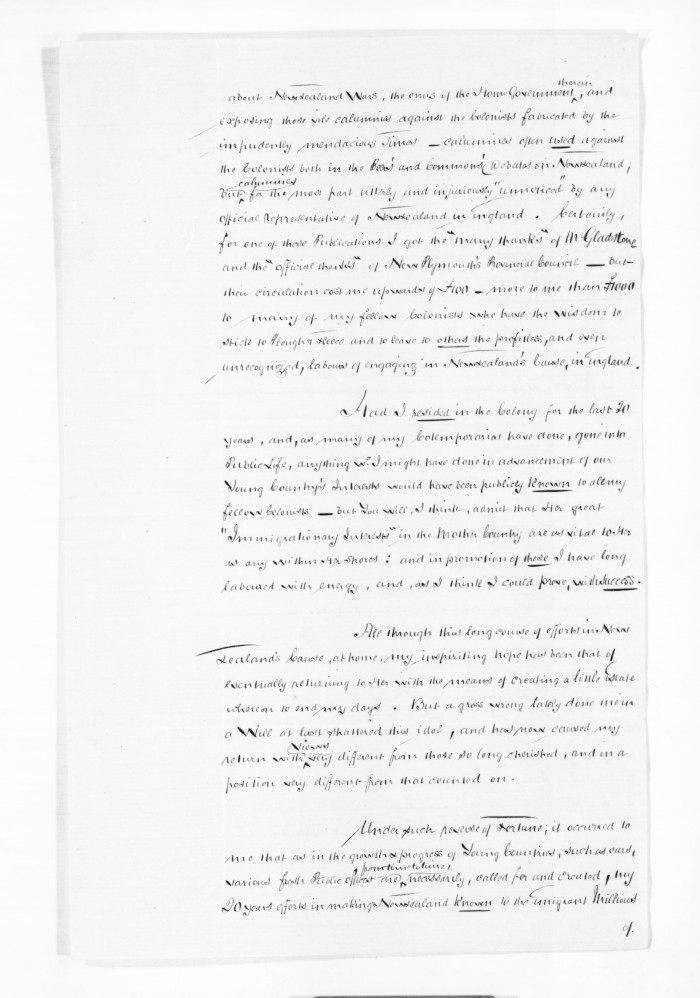 therein
about New Zealand Wars, the onus of the Home Government ^, and
exposing those vile calumnies against the Colonists fabricated by the
impudently mendacious Times — calumnies often used against
the Colonists both in the Peers' and Commons' Debates on New Zealand,
calumnies
but ^ for the most part utterly and injuriously "unnoticed" by any
official representative of New Zealand in England. Certainly,
for one of these Publications I got the "many thanks" of Mr Gladstone
and the "official thanks" of New Plymouth's Provincial Council — but
their circulation cost me upwards of £100 — more to me than £1000
to many of my fellow Colonists who have the wisdom to
stick to Plough & Fleece and to leave to others the profitless, and even
unrecognized, labours of engaging in New Zealand's Cause, in England.
Had I resided in the Colony for the last 20
years, and, as many of my Cotemporaries have done, gone into
Public Life, anything wh I might have done in advancement of our
Young Country's Interests would have been publicly known to all my
fellow Colonists — but You will, I think, admit that Her great
"Immigrationary Interests" in the Mother Country are as vital to Her
as any within Her shores: and in promotion of these I have long
laboured with energy, and, as I think I could prove, with success.
All through this long course of efforts in New
Zealand's Cause, at home, my inspiriting hope has been that of
eventually returning to Her with the means of creating a little Estate
whereon to end my days. But a gross wrong lately done me in
a Will at last shattered this idol, and has now caused my
Views
return with ^ very different from those so long cherished, and in a
position very different from that counted on.
Under such reverse of Fortune, it occurred to
me that as in the growth & progress of Young Countries, such as ours,
from time to time,
various fresh Public offices are ^ necessarily, called for and created, my
20 years efforts in making New Zealand known to the Emigrant Millions
of.